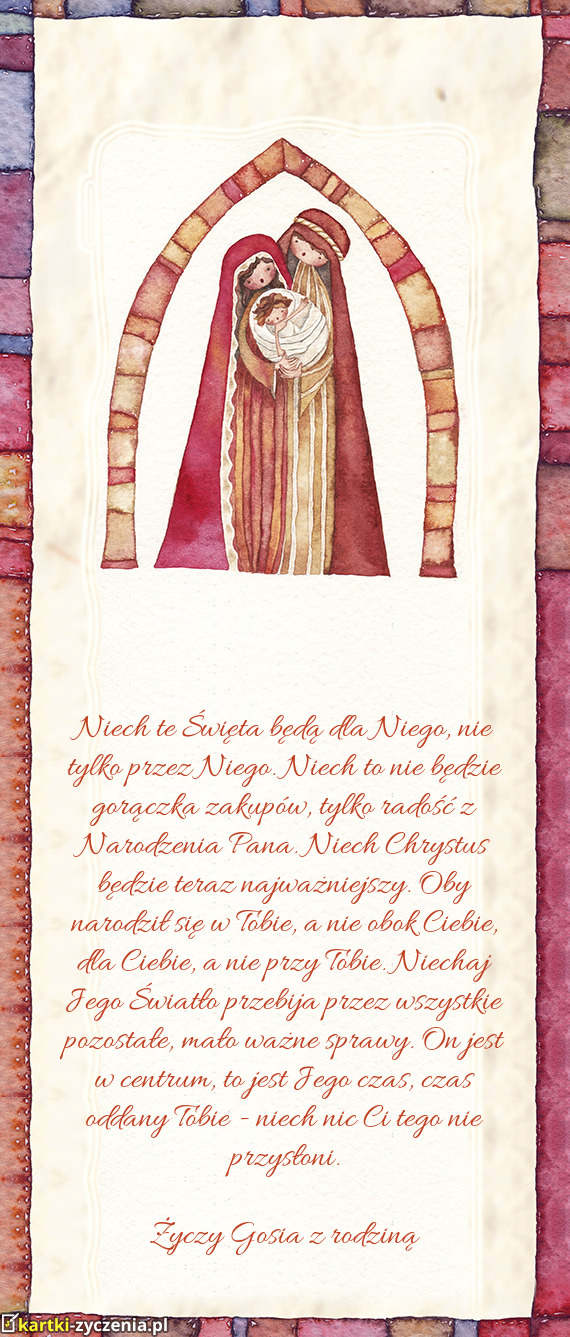 Niech te Święta będą dla Niego, nie
tylko przez Niego. Niech to nie będzie
gorączka zakupów, tylko radość z
Narodzenia Pana. Niech Chrystus
będzie teraz najważniejszy. Oby
narodził się w Tobie, a nie obok Ciebie,
dla Ciebie, a nie przy Tobie. Niechaj
Jego Światło przebija przez wszystkie
pozostałe, mało ważne sprawy. On jest
w centrum, to jest Jego czas, czas
oddany Tobie - niech nic Ci tego nie
przysłoni.
Życzy Gosia z rodziną
kartki-zyczenia.pl